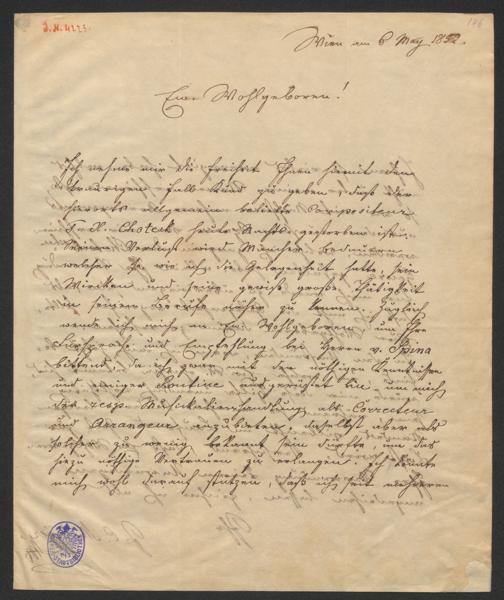 I.N. 4223.
Wien am 6 May 1852.
Euer Wohlgeboren!
Ich nehme mir die Freiheit Ihnen hiermit den
traurigen Fall kund zu geben, daß der
allgemein beliebte Compositeur
F. X. Chotek heute Nachts gestorben ist.
Seinen Verlust wird Mancher bedauern
welcher so wie ich die Gelegenheit hatte, sein
Wirken und seine gewiß große Thätigkeit
in seinem Berufe näher zu kennen.
wende ich mich an Euer Wohlgeboren um Ihre
Fürsprache und Empfehlung bei Herrn v. Spina
bittend, da ich zwar mit den nöthigen Kenntnissen
und einiger Routine ausgerüstet bin um mich
der resp. Musikalienhandlung als Correcteur
und Arrangeur anzubieten, daselbst aber als
solcher zu wenig bekannt sein dürfte, um das
hiezu nöthige Vertrauen zu erlangen. Ich könnte
mich wohl darauf stützen, daß ich seit mehreren